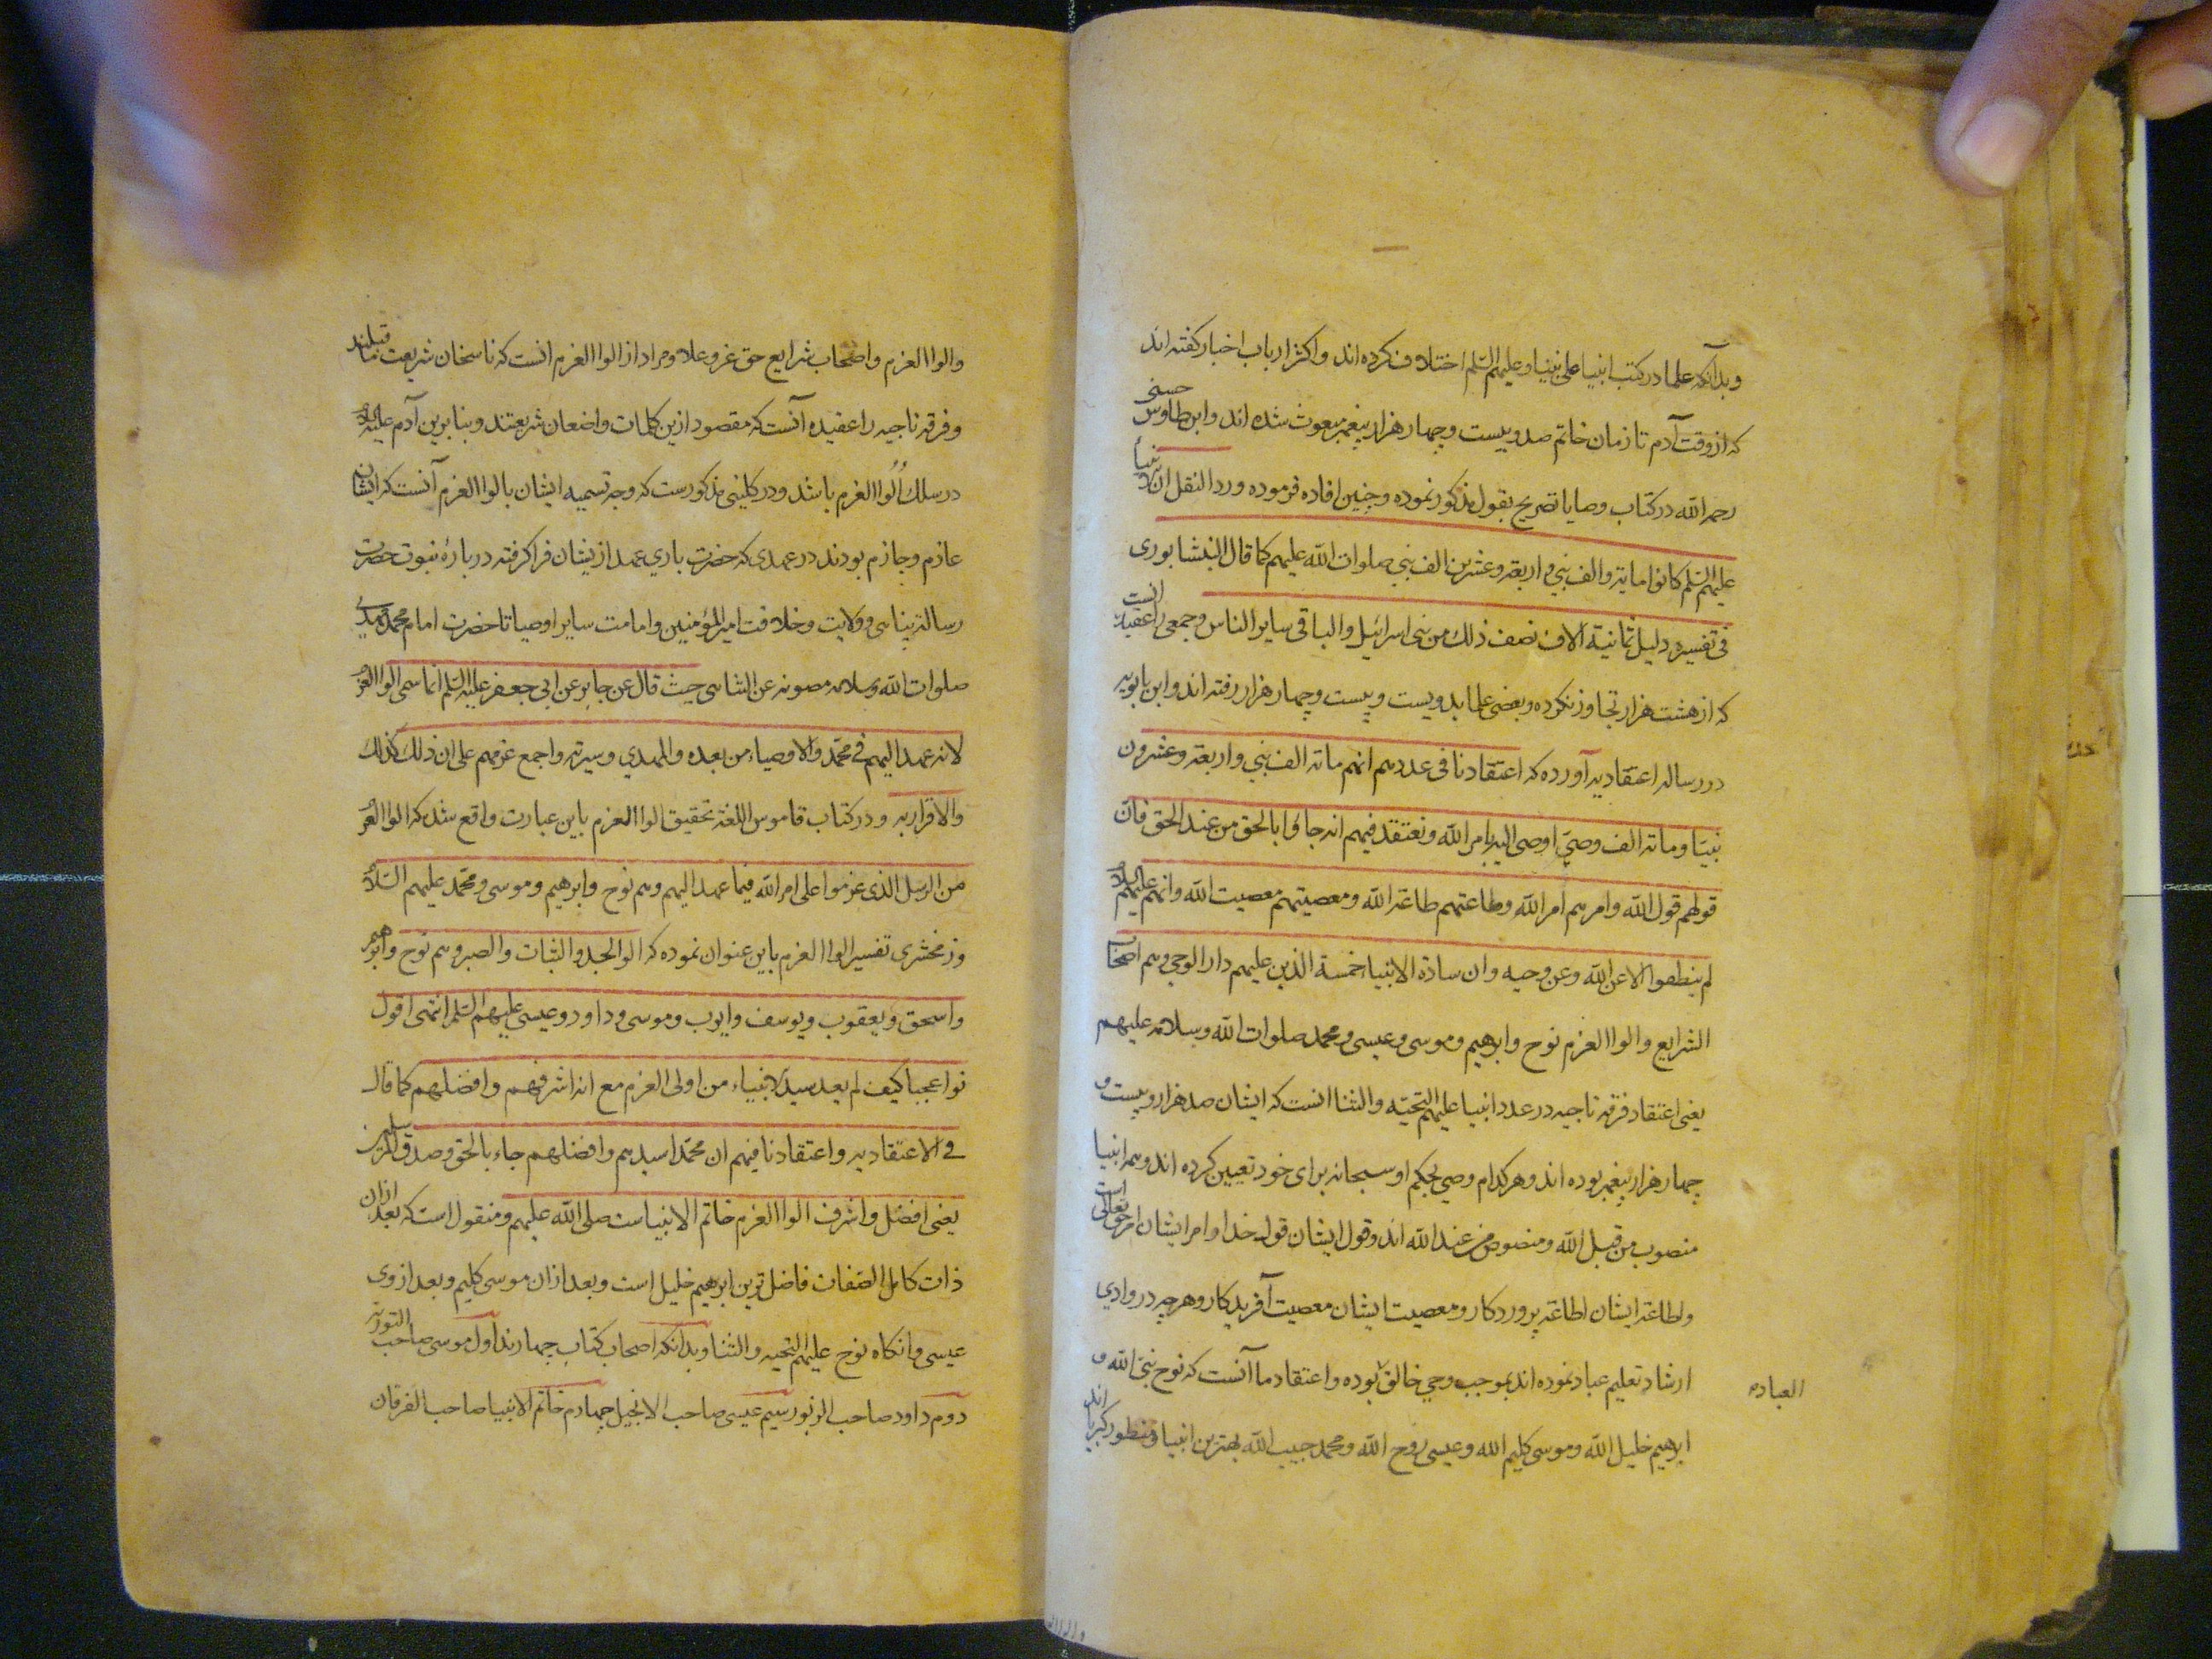 وبدآنکه علما در کتب انبیا علی نبینا وعلیهم السّلم اختلاف کرده اند واکثر ارباب اخبار کفته اند
که از وقت آدم تا زمان خاتم صد وبیست وچهار هزار پیغمبر مبعوث شده اند وابن طاوس حسنی
رحمه الله در کتاب وصایا تصریح بقول مذکور نموده وچنین افاده فرموده ورد النقل ان الانبیأ
علیهم السّلم کانوا مایة والف نبی و اربعة وعشرین الف نبی صلوات الله علیهم کما قال النیشابوری
فی تفسیره دلیل ثمانیة الاف نصف ذلك من بنی اسرائیل والباقی سایر الناس وجمعی را عقیده انست
که از هشت هزار تجاوز نکرده وبعضی علما بدویست وبیست وچهار هزار رفته اند وابن بابویه
در رساله اعتقادیه آورده که اعتقادنا فی عددهم انهم مائة الف نبی واربعة وعشرون
نبیّا ومائة الف وصیّ اوصی الیه بامر الله ونعتقد فیهم انه جاؤا بالحق من عند الحق فانّ
قولهم قول الله وامرهم امر الله وطاعتهم طاعة الله ومعصیتهم معصیت الله وانهم علیهم السلام
لم ینطقوا الا عن الله وعن وحیه وان سادة الانبیاء خمسة الذین علیهم دار الوحی وهم اصحاب
الشرایع والوا العزم نوح وابرهیم وموسی وعیسی ومحمد صلوات الله وسلامه علیهم
یعنی اعتقاد فرقه ناجیه در عدد انبیا علیهم التحیّه والثنا انست که ایشان صد هزار وبیست و
چهار هزار پیغمبر بوده اند وهر کدام وصی بحکم او سبحانه برای خود تعیین کرده اند وهمه انبیا
منصوب من قبل الله ومنصوص من عند الله اند وقول ایشان قول خدا وامر ایشان امر حق تعالی است
ولطاعة ایشان اطاعة پروردکار ومعصیت ایشان معصیت آفریدکار وهر چه در وادی
ارشاد وتعلیم عباد نموده اند بموجب وحی خالق بوده واعتقاد ما آنست که نوح نبی الله و
العباده
ابرهیم خلیل الله وموسی کلیم الله وعیسی روح الله ومحمد حبیب الله بهترین انبیا ومنظور کبریا اند
والوا العزم واصحاب شرایع حق عز وعلا ومراد از الوا العزم انست که ناسخان شریعت ما قبلند
وفرقه ناجیه را عقیده آنست که مقصود ازین کلمات واضعان شریعتند وبنابرین آدم علیه السلام
در سلك اُلوا العزم باشد ودر کلینی مذکورست که وجه تسمیه ایشان بالوا العزم آنست که ایشان
عازم وجازم بودند در عهدی که حضرت باری عهد ازیشان فرا کرفته در بارهٔ نبوت حضرت
رسالة پناهی وولایت وخلافت امیر المؤمنین وامامت سایر اوصیا تا حضرت امام محمد مهدی
صلوات الله وسلامه مصونه عن الشاسی حیث قال عن جابر عن ابی جعفر علیه السّلم انما سمی الوا العزم
لانه عهد الیهم فی محمّد والاوصیاء من بعده والمهدی وسیرته واجمع عزمهم علی ان ذلك کذلك
والاقرار به ودر کتاب قاموس اللغة تحقیق الوا العزم باین عبارت واقع شده که الوا العزم
من الرسل الذی عزموا علی امر الله فیما عهد الیهم وهم نوح وابرهیم وموسی ومحمّد علیهم السّلام
وزمخشری تفسیر الوا العزم باین عنوان نموده که الوا الجد والثبات والصبر وهم نوح وابرهیم
واسحق ویعقوب ویوسف وایوب وموسی وداود وعیسی علیهم السّلم انتهی اقول
فوا عجبا کیف لم یعد سید الانبیاء من اولی العزم مع انه اشرفهم وافضلهم کما قال
فی الاعتقادیه واعتقادنا فیهم ان محمّدا سیدهم وافضلهم جاء بالحق وصدق المرسلین
یعنی افضل واشرف الوا العزم خاتم الانبیاست صلی الله علیهم ومنقول است که بعد از ان
ذات کامل الصفات فاضل ترین ابرهیم خلیل است وبعد ازان موسی کلیم وبعد از وی
عیسی وانکاه نوح علیهم التحیه والثنا وبدآنکه اصحاب کتاب چهارند اول موسی صاحب التوریة
دوم داود صاحب الزبور سیم عیسی صاحب الانجیل چهارم خاتم الانبیا صاحب الفرقان